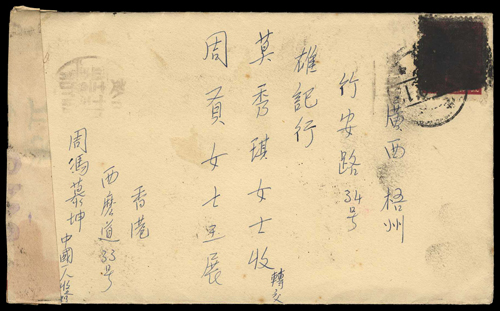 廣西梧州
竹安路34号
雄記行
莫秀琪女士收
轉交
周貢女士呈展
香港
西摩道33号
周馮慕坤
中國人